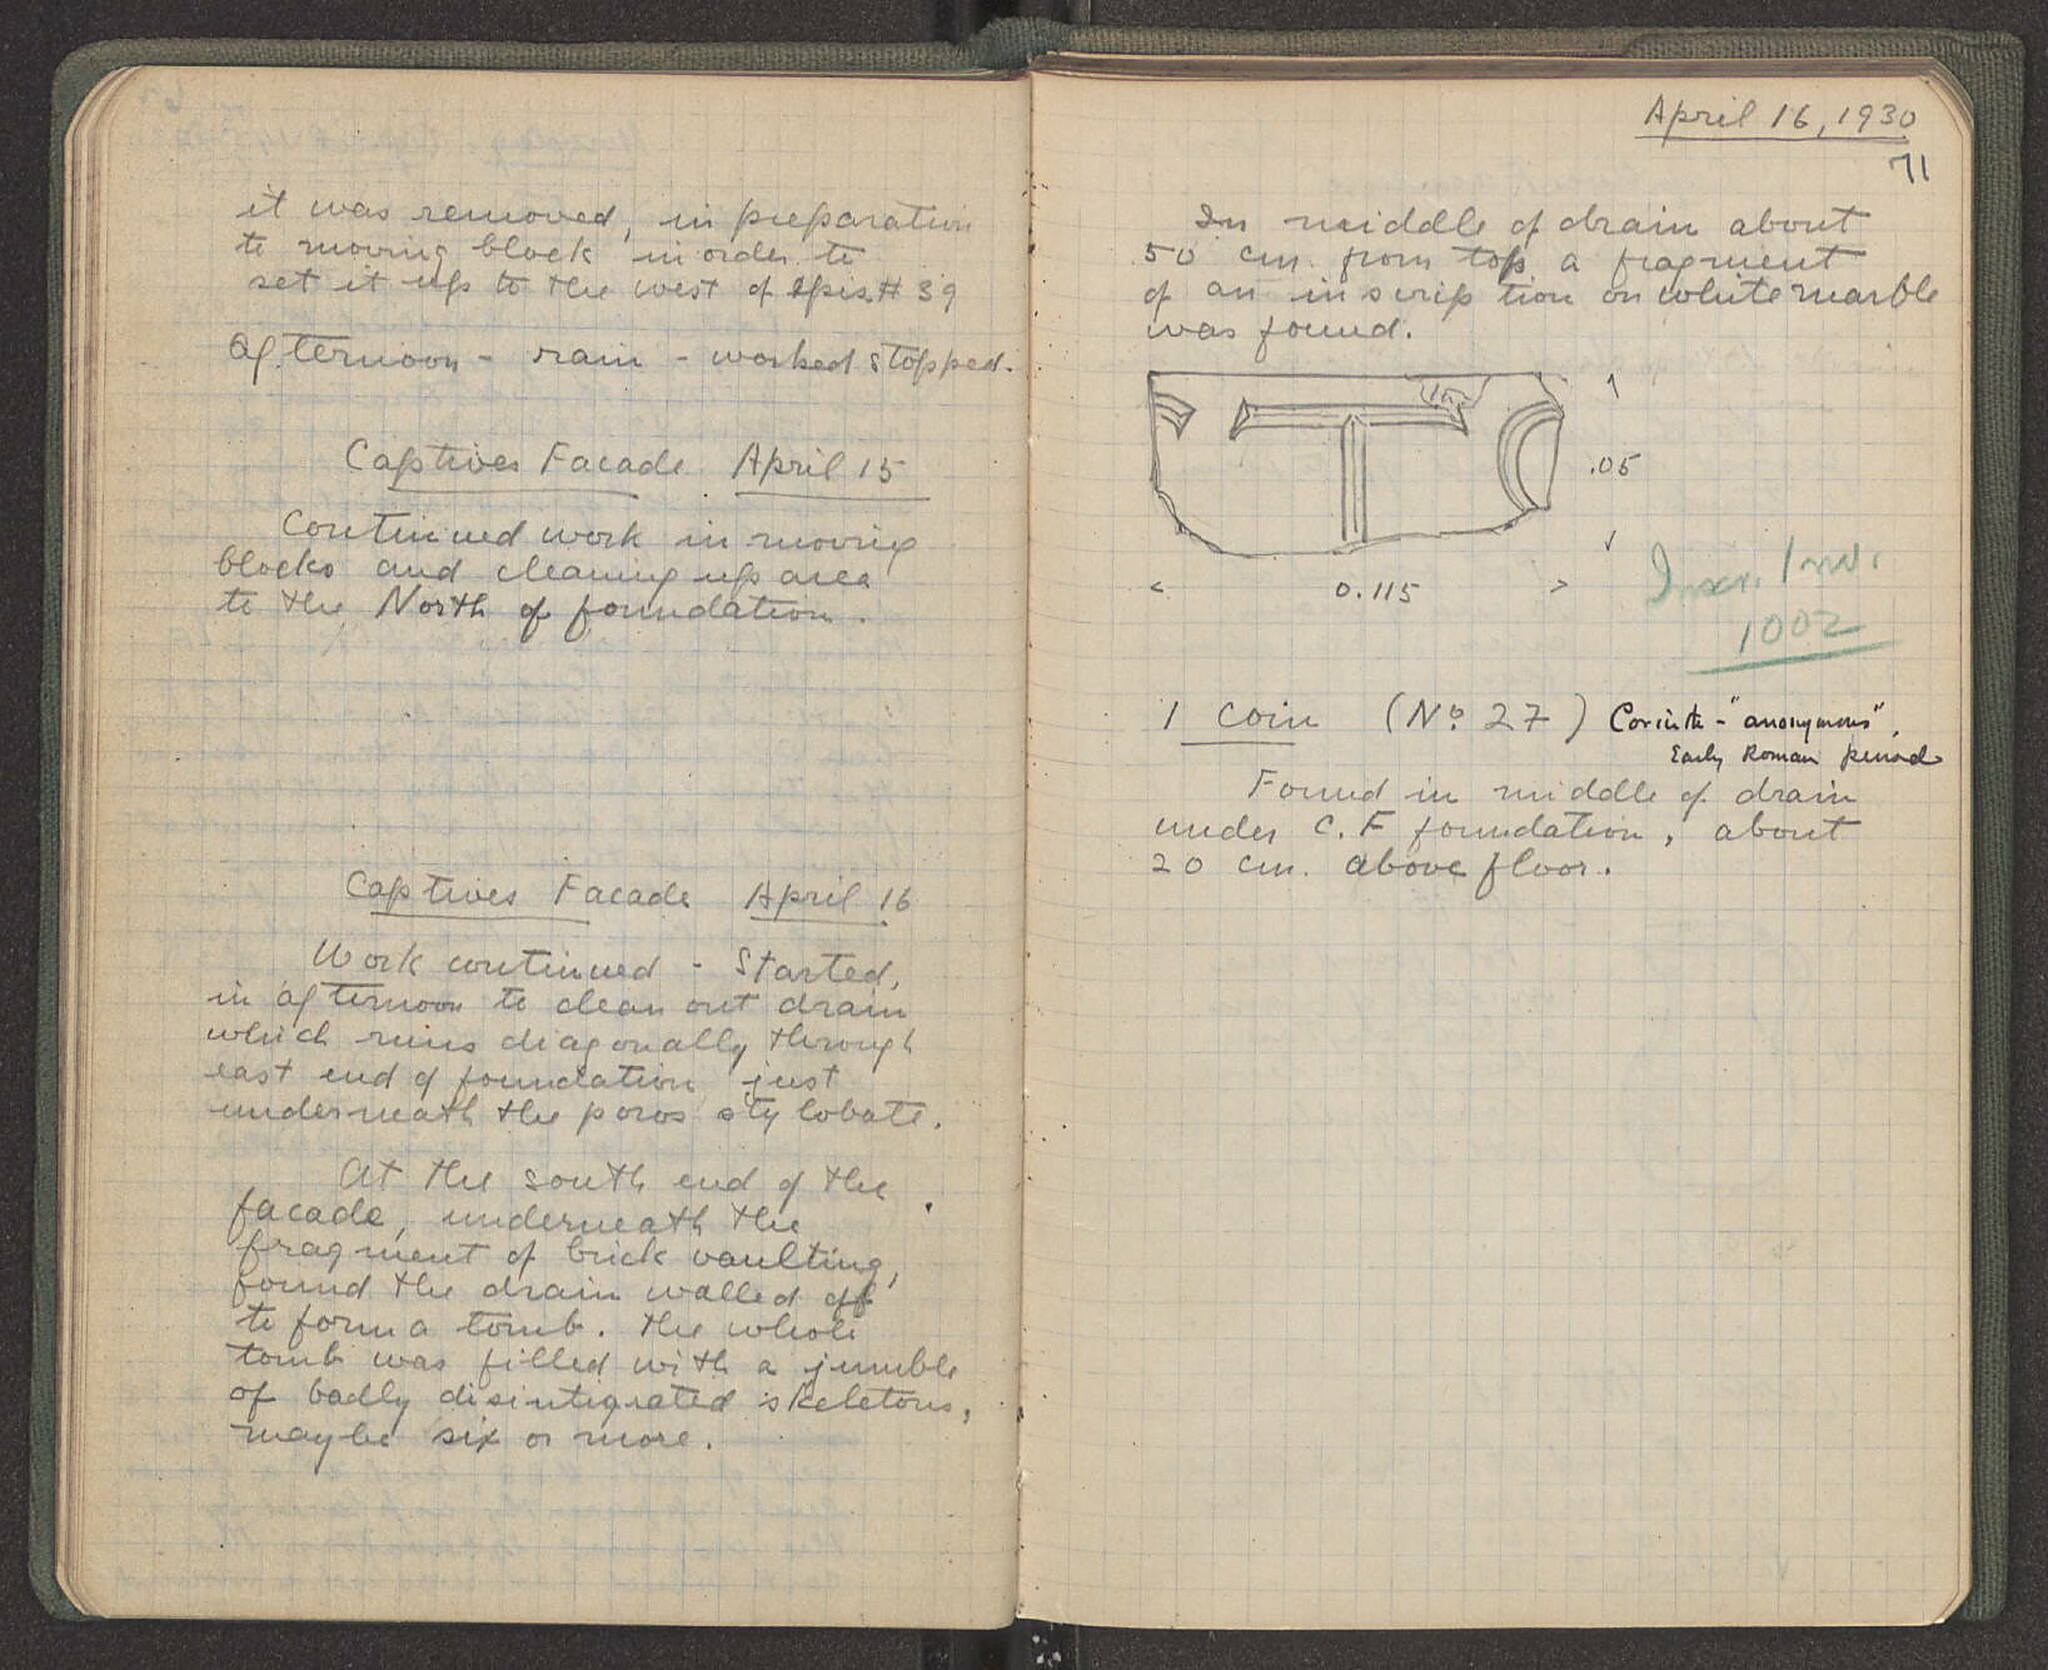 it was removed, in preparation
to moving block in order to
set it up to the west of epis. # 39
Afternoon - rain - worked stopped.
Captives Facade April 15
Continued work in moving
blocks and cleaning up area
to the North of foundation.
Captives Facade April 16
Work continued - Started,
in afternoon to clean out drain
which runs diagonally through
east end of foundation just
underneath the poros stylobate.
At the south end of the
facade, underneath the
fragment of brick vaulting,
found the drain walled off
to form a tomb. The whole
tomb was filled with a jumble
of badly disintigrated skeletons,
maybe six or more.
April 16, 1930
71
In middle of drain about
50 cm. from top a fragment
of an inscription on white marble
was found.
T
.05
0.115
Inscr. Inv.
1002
1 coin (No 27) Corinth - "anonymous",
Early Roman period
Found in middle of drain
under C.F foundation, about
20 cm. above floor.